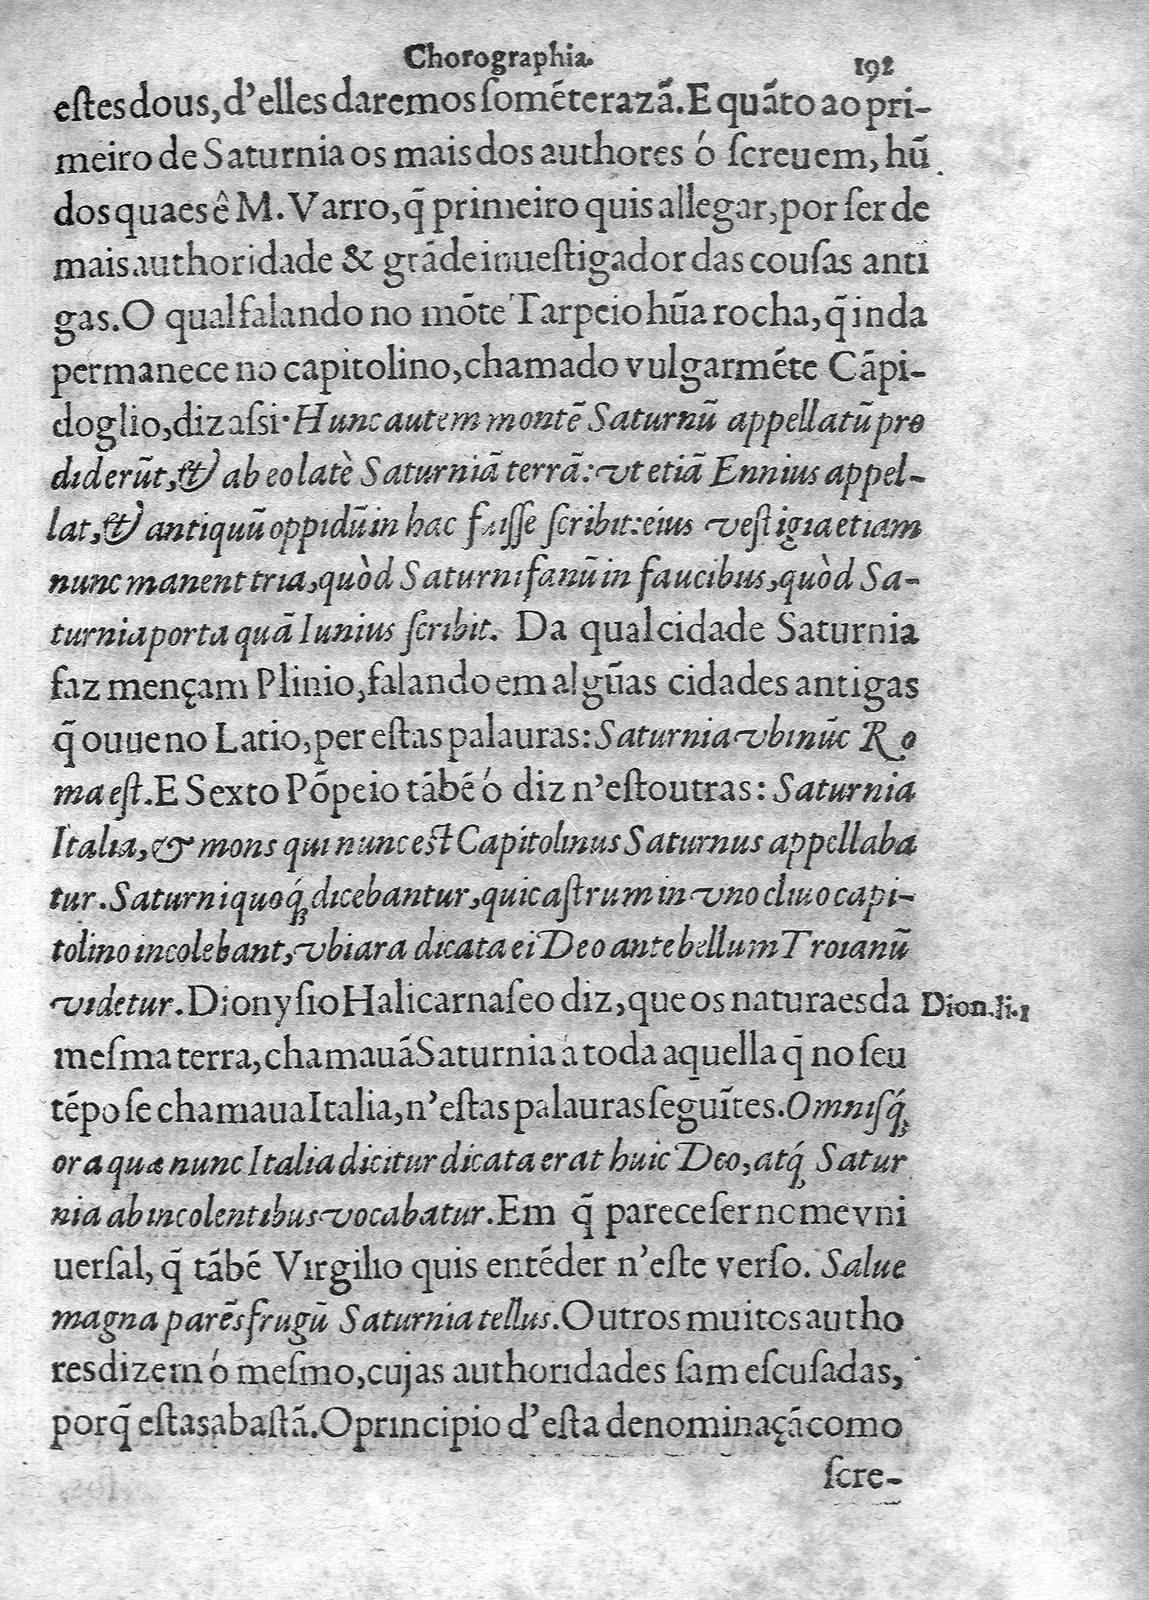 Chorographia. 192
eſtes dous, d'elles daremos ſomẽte razã. E quãto ao pri-
meiro de Saturnia os mais dos authores ó ſcreuem, hũ
dos quaes ê M. Varro, q̃ primeiro quis allegar, por ſer de
mais authoridade & grãde inueſtigador das couſas anti
gas. O qual falando no mõte Tarpeio hũa rocha, q̃ inda
permanece no capitolino, chamado vulgarmẽte Cãpi-
doglio, diz aſsi· Hunc autem montẽ Saturnũ appellatũ pro
diderũt, & ab eo latè Saturniã terrã: vt etiã Ennius appel-
lat, & antiquũ oppidũ in hac fuiſſe ſcribit: eius veſtigia etiam
nunc manent tria, quòd Saturni fanũ in faucibus, quòd Sa-
turnia porta quã Iunius ſcribit. Da qual cidade Saturnia
faz mençam Plinio, falando em algũas cidades antigas
q̃ ouue no Latio, per eſtas palauras: Saturnia vbi nũc Ro
ma eſt. E Sexto Põpeio tãbẽ ó diz n'eſtoutras: Saturnia
Italia, & mons qui nunc eſt Capitolinus Saturnus appellaba
tur. Saturni quoq́; dicebantur, qui caſtrum in vno cliuo capi-
tolino incolebant, vbi ara dicata ei Deo ante bellum Troianũ
videtur. Dionyſio Halicarnaſeo diz, que os naturaes da Dion. li. 1
meſma terra, chamauã Saturnia a toda aquella q̃ no ſeu
tẽpo ſe chamaua Italia, n'eſtas palauras ſeguĩtes. Omniſq́;
ora quæ nunc Italia dicitur dicata erat huic Deo, atq́; Satur
nia ab incolentibus vocabatur. Em q̃ parece ſer nome vni
uerſal, q̃ tãbẽ Virgilio quis entẽder n'eſte verſo. Salue
magna parẽs frugũ Saturnia tellus. Outros muitos autho
res dizem ó meſmo, cujas authoridades ſam eſcuſadas,
porq̃ eſtas abaſtã. O principio d'eſta denominaçã como
ſcre-